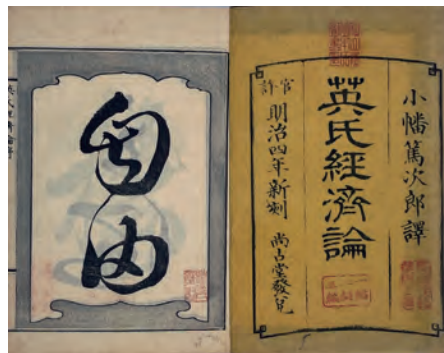 小幡篤次郎譯
英氏經濟論
官許
明治四年新刻 尚古堂發兌
自由